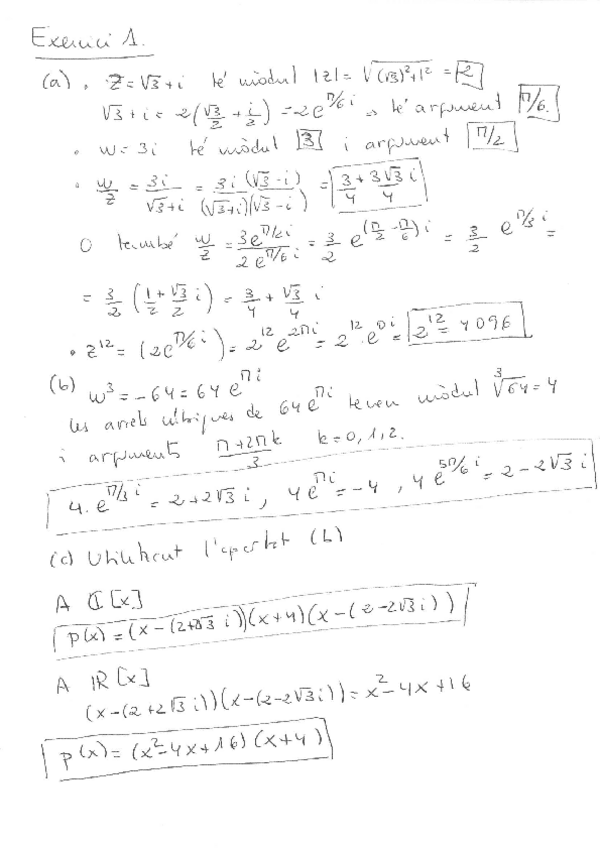 Exercici 1.
(a) • z = √3 + i té mòdul |z| = √((√3)²+1²) = 2
√3 + i = 2(√3/2 + i/2) = 2e^(π/6 i) → té argument π/6.
• w = 3i té mòdul 3 i argument π/2
• w/z = 3i/(√3+i) = 3i(√3-i)/((√3+i)(√3-i)) = 3/4 + 3√3/4 i
O també w/z = 3e^(π/2 i)/2e^(π/6 i) = 3/2 e^((π/2 - π/6) i) = 3/2 e^(π/3 i) =
= 3/2 (1/2 + √3/2 i) = 3/4 + √3/4 i
• z¹² = (2e^(π/6 i)) = 2¹² e^(2π i) = 2¹² · e^(0 i) = 2¹² = 4096
(b) w³ = -64 = 64 e^(π i)
les arrels cúbiques de 64e^(π i) tenen mòdul ∛64 = 4
i arguments (π+2πk)/3 k = 0, 1, 2.
4 · e^(π/3 i) = 2 + 2√3 i, 4e^(π i) = -4, 4e^(5π/6 i) = 2 - 2√3 i
(c) Utilitzant l'apartat (b)
A ℂ[x]
p(x) = (x - (2+2√3 i))(x+4)(x - (2-2√3 i))
A ℝ[x]
(x - (2+2√3 i))(x - (2-2√3 i)) = x² - 4x + 16
p(x) = (x² - 4x + 16)(x+4)